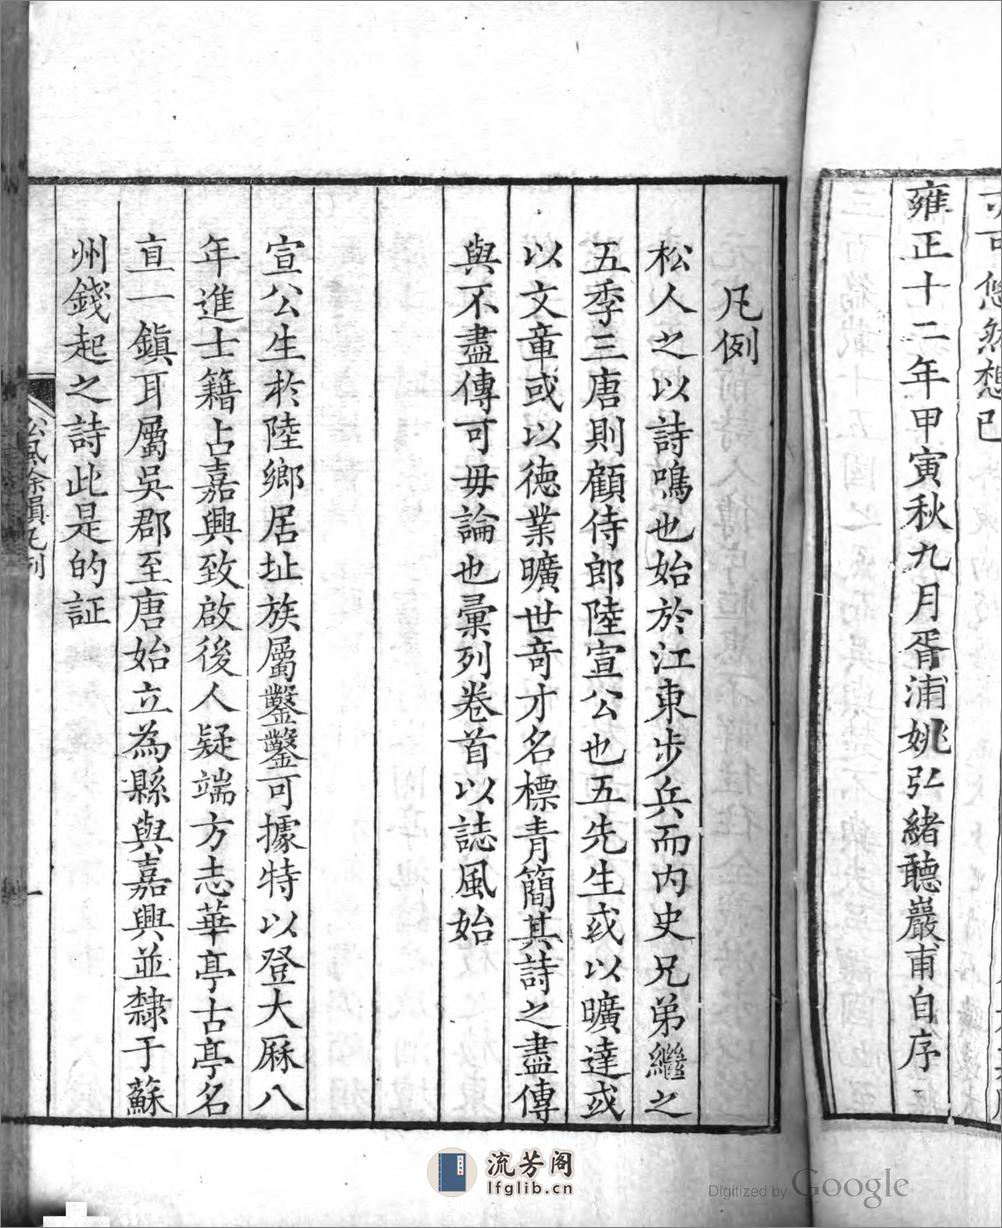 可可悠然想已
雍正十二年甲寅秋九月胥浦姚弘緒聽巖甫自序
凡例
松人之以詩鳴也始於江東步兵而内史兄弟繼之
五季三唐則顧侍郎陸宣公也五先生或以曠達或
以文章或以德業曠世竒才名標青簡其詩之盡傳
與不盡傳可毋論也彙列卷首以誌風始
宣公生於陸鄉居址族屬鑿鑿可據特以登大厤八
年進士籍占嘉興致啟後人疑端方志華亭古亭名
直一鎮耳屬吳郡至唐始立為縣與嘉興並隸于蘇
州錢起之詩此是的証
松風餘韻凡例
一
流芳阁
lfglib.cn
Digitized by Google